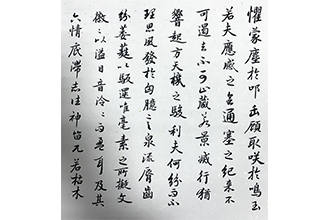 懼蒙塵於叩缶顧取咲於鳴玉
若夫應感之會通塞之紀来不
可遏去不可止藏若景滅行猶
響起方天機之駿利夫何紛而不
理思風發於胸臆言泉流脣齒
紛葳蕤以馺遝唯毫素之所擬文
徽〻以溢目音泠〻而盈耳及其
六情底滯志往神留兀若枯木